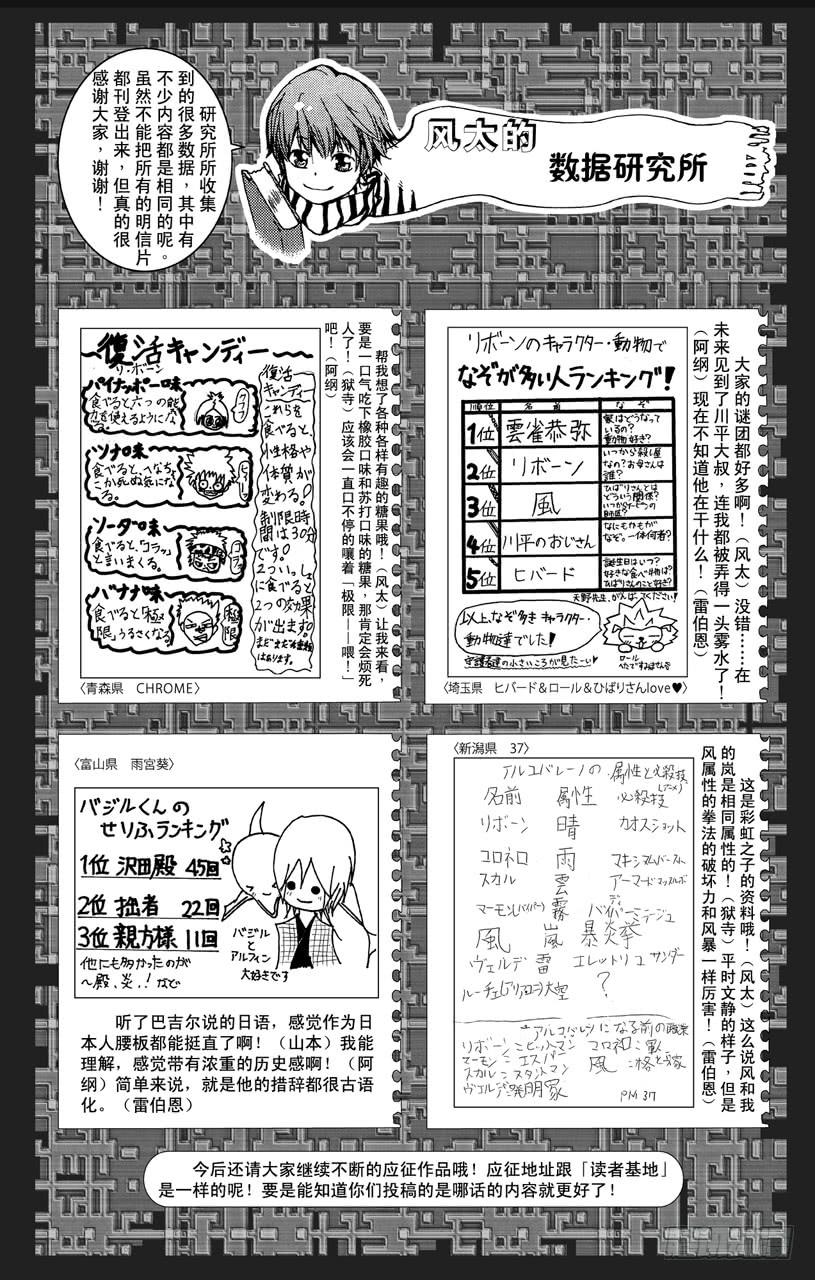 风太的
数据研究所
研究所所收集
到的很多数据，其中有
不少内容都是相同的呢。
虽然不能把所有的明信片
都刊登出来，但真的很
感谢大家，谢谢！
リボーンのキャラクター・動物で
なぞが多い人ランキング！
順位 名前 なぞ
1位 雲雀恭弥 家はどうなって
いるの？
動物好き？
2位 リボーン いつから殺し屋
なの？お母さんは
誰？
3位 風 ひばりさんとは
どういう関係？
4位 川平のおじさん なにもかもが
なぞ。一体何者？
5位 ヒバード 誕生日はいつ？
好きな食べ物は？
ひばりさんのこと好き？
天野先生、がんばってください！
以上、なぞ多きキャラクター・
動物達でした！
守護者達の小さいころが見たーい♥
ロール
〈埼玉県　ヒバード＆ロール＆ひばりさんlove♥〉
大家的谜团都好多啊！（风太）没错……在
未来见到了川平大叔，连我都被弄得一头雾水了！
（阿纲）现在不知道他在干什么！（雷伯恩）
復活キャンディー
リ・ボーン
パイナッポー味
食べると六つの能
力を使えるようにな
る。
クフフ
ツナ味
食べると、へなちょ
こが死ぬ気にな
る。
ソーダ味
食べると、コラッ
と言いまくる。
コラ
バナナ味
食べると「極
限」うるさくなる。
極限
復活
キャンディー
これらを
食べると、
性格や
体質が
変わる！
制限時
間は30分
です。
2ついっしょ
に食べると
2つの効果
が出ます。
はあります。
〈青森県　CHROME〉
帮我想了各种各样有趣的糖果哦！（风太）让我来看，
要是一口气吃下橡胶口味和苏打口味的糖果，那肯定会烦死
人了！（狱寺）应该会一直口不停的嚷着「极限——喂！」
吧！（阿纲）
〈富山県　雨宮葵〉
バジルくんの
せりふランキング
1位 沢田殿 45回
2位 拙者 22回
3位 親方様 11回
他にも多かったのが
〜殿、炎、！など
バジル
と
アルフィン
大好きです
听了巴吉尔说的日语，感觉作为日
本人腰板都能挺直了啊！（山本）我能
理解，感觉带有浓重的历史感啊！（阿
纲）简单来说，就是他的措辞都很古语
化。（雷伯恩）
〈新潟県　37〉
アルコバレーノの 属性と必殺技
名前 属性 必殺技
リボーン 晴 カオスショット
コロネロ 雨 マキシマムバースト
スカル 雲 アーマードマッスルボディ
マーモン(バイパー) 霧 バイパーミラージュ
風 嵐 爆炎拳
ヴェルデ 雷 エレットリコサンダー
ルーチェ(アリア、ユニ) 大空 ？
アルコバレーノになる前の職業
リボーン＝ヒットマン コロネロ＝軍人
マーモン＝エスパー 風＝格とう家
スカル＝スタントマン
ヴェルデ＝発明家 PM 37
这是彩虹之子的资料哦！（风太）这么说风和我
的岚是相同属性的！（狱寺）平时文静的样子，但是
风属性的拳法的破坏力和风暴一样厉害！（雷伯恩）
今后还请大家继续不断的应征作品哦！应征地址跟「读者基地」
是一样的呢！要是能知道你们投稿的是哪话的内容就更好了！